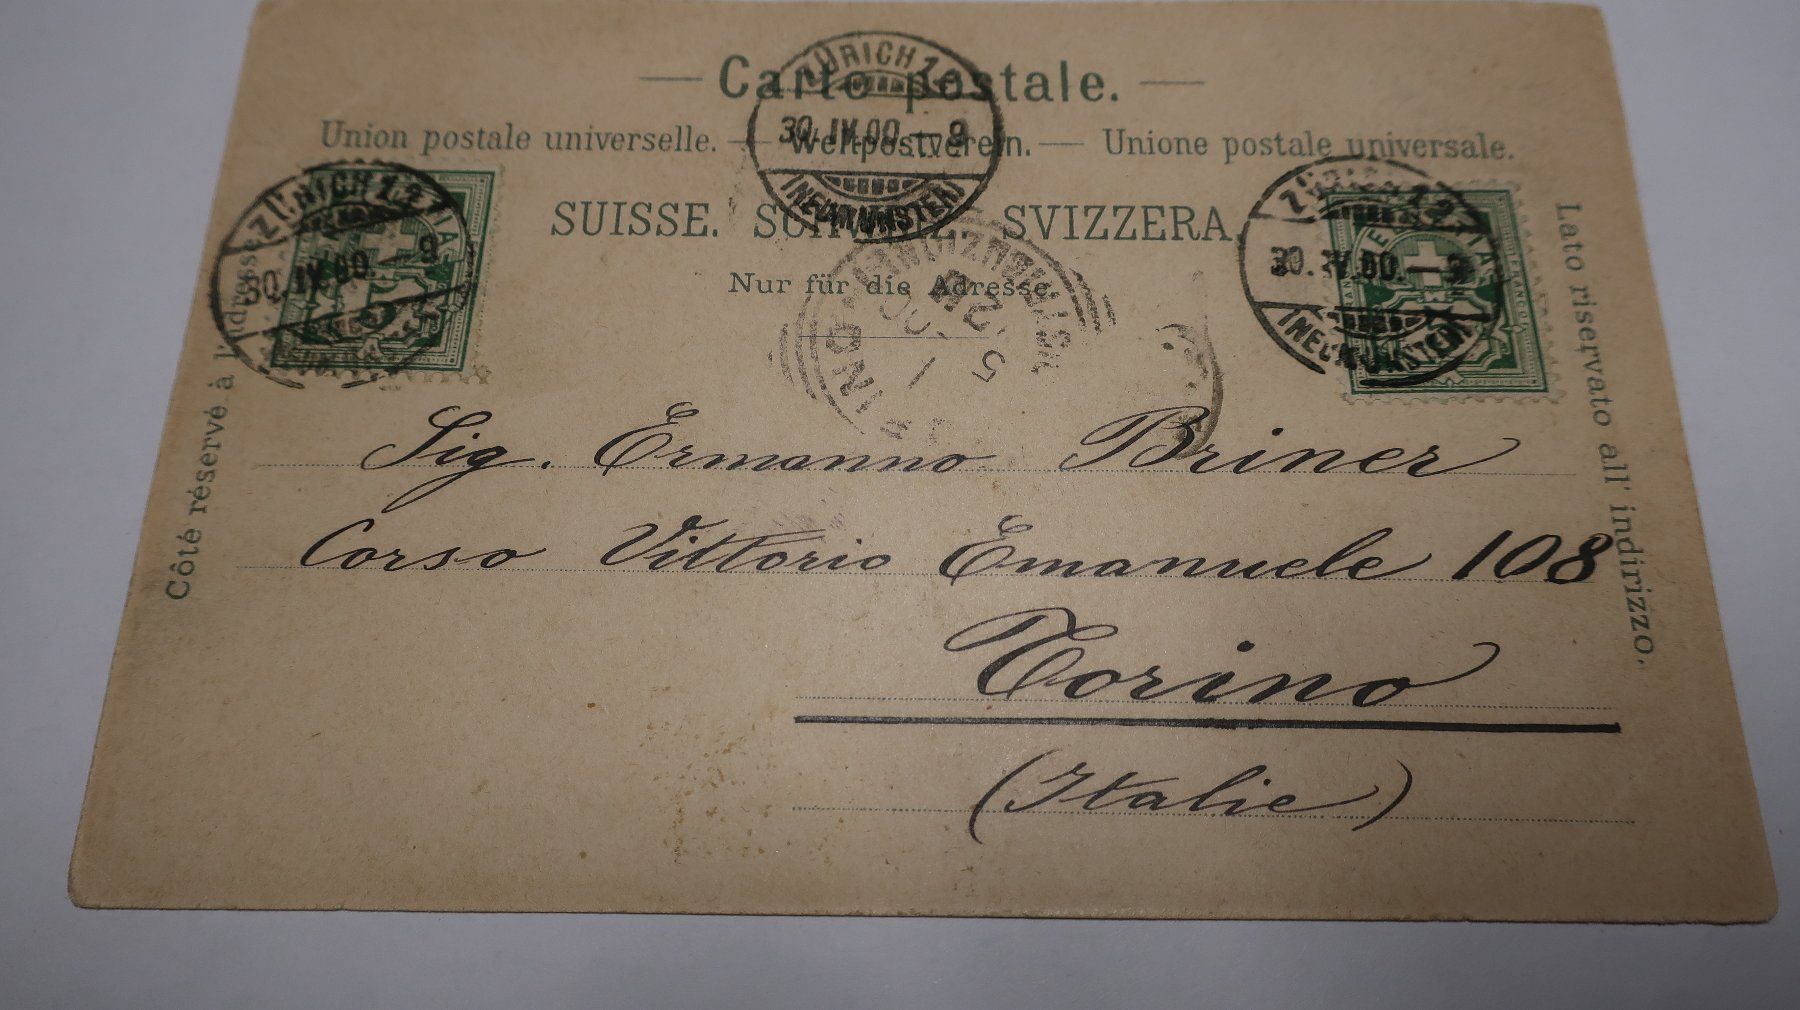 Carte postale.
Union postale universelle. — Weltpostverein. — Unione postale universale.
SUISSE. SCHWEIZ. SVIZZERA.
Nur für die Adresse.
Côté réservé à l'adresse.
Lato riservato all' indirizzo.
ZÜRICH 12
30.IV.00.–9
(NEUMÜNSTER)
ZÜRICH 12
30.IV.00.–9
ZÜRICH 12
30.IV.00.–9
(NEUMÜNSTER)
FRANCO
TORINO
DISTRIBUZIONE
1 5
00
Sig. Ermanno Briner
Corso Vittorio Emanuele 108
Torino
(Italie)